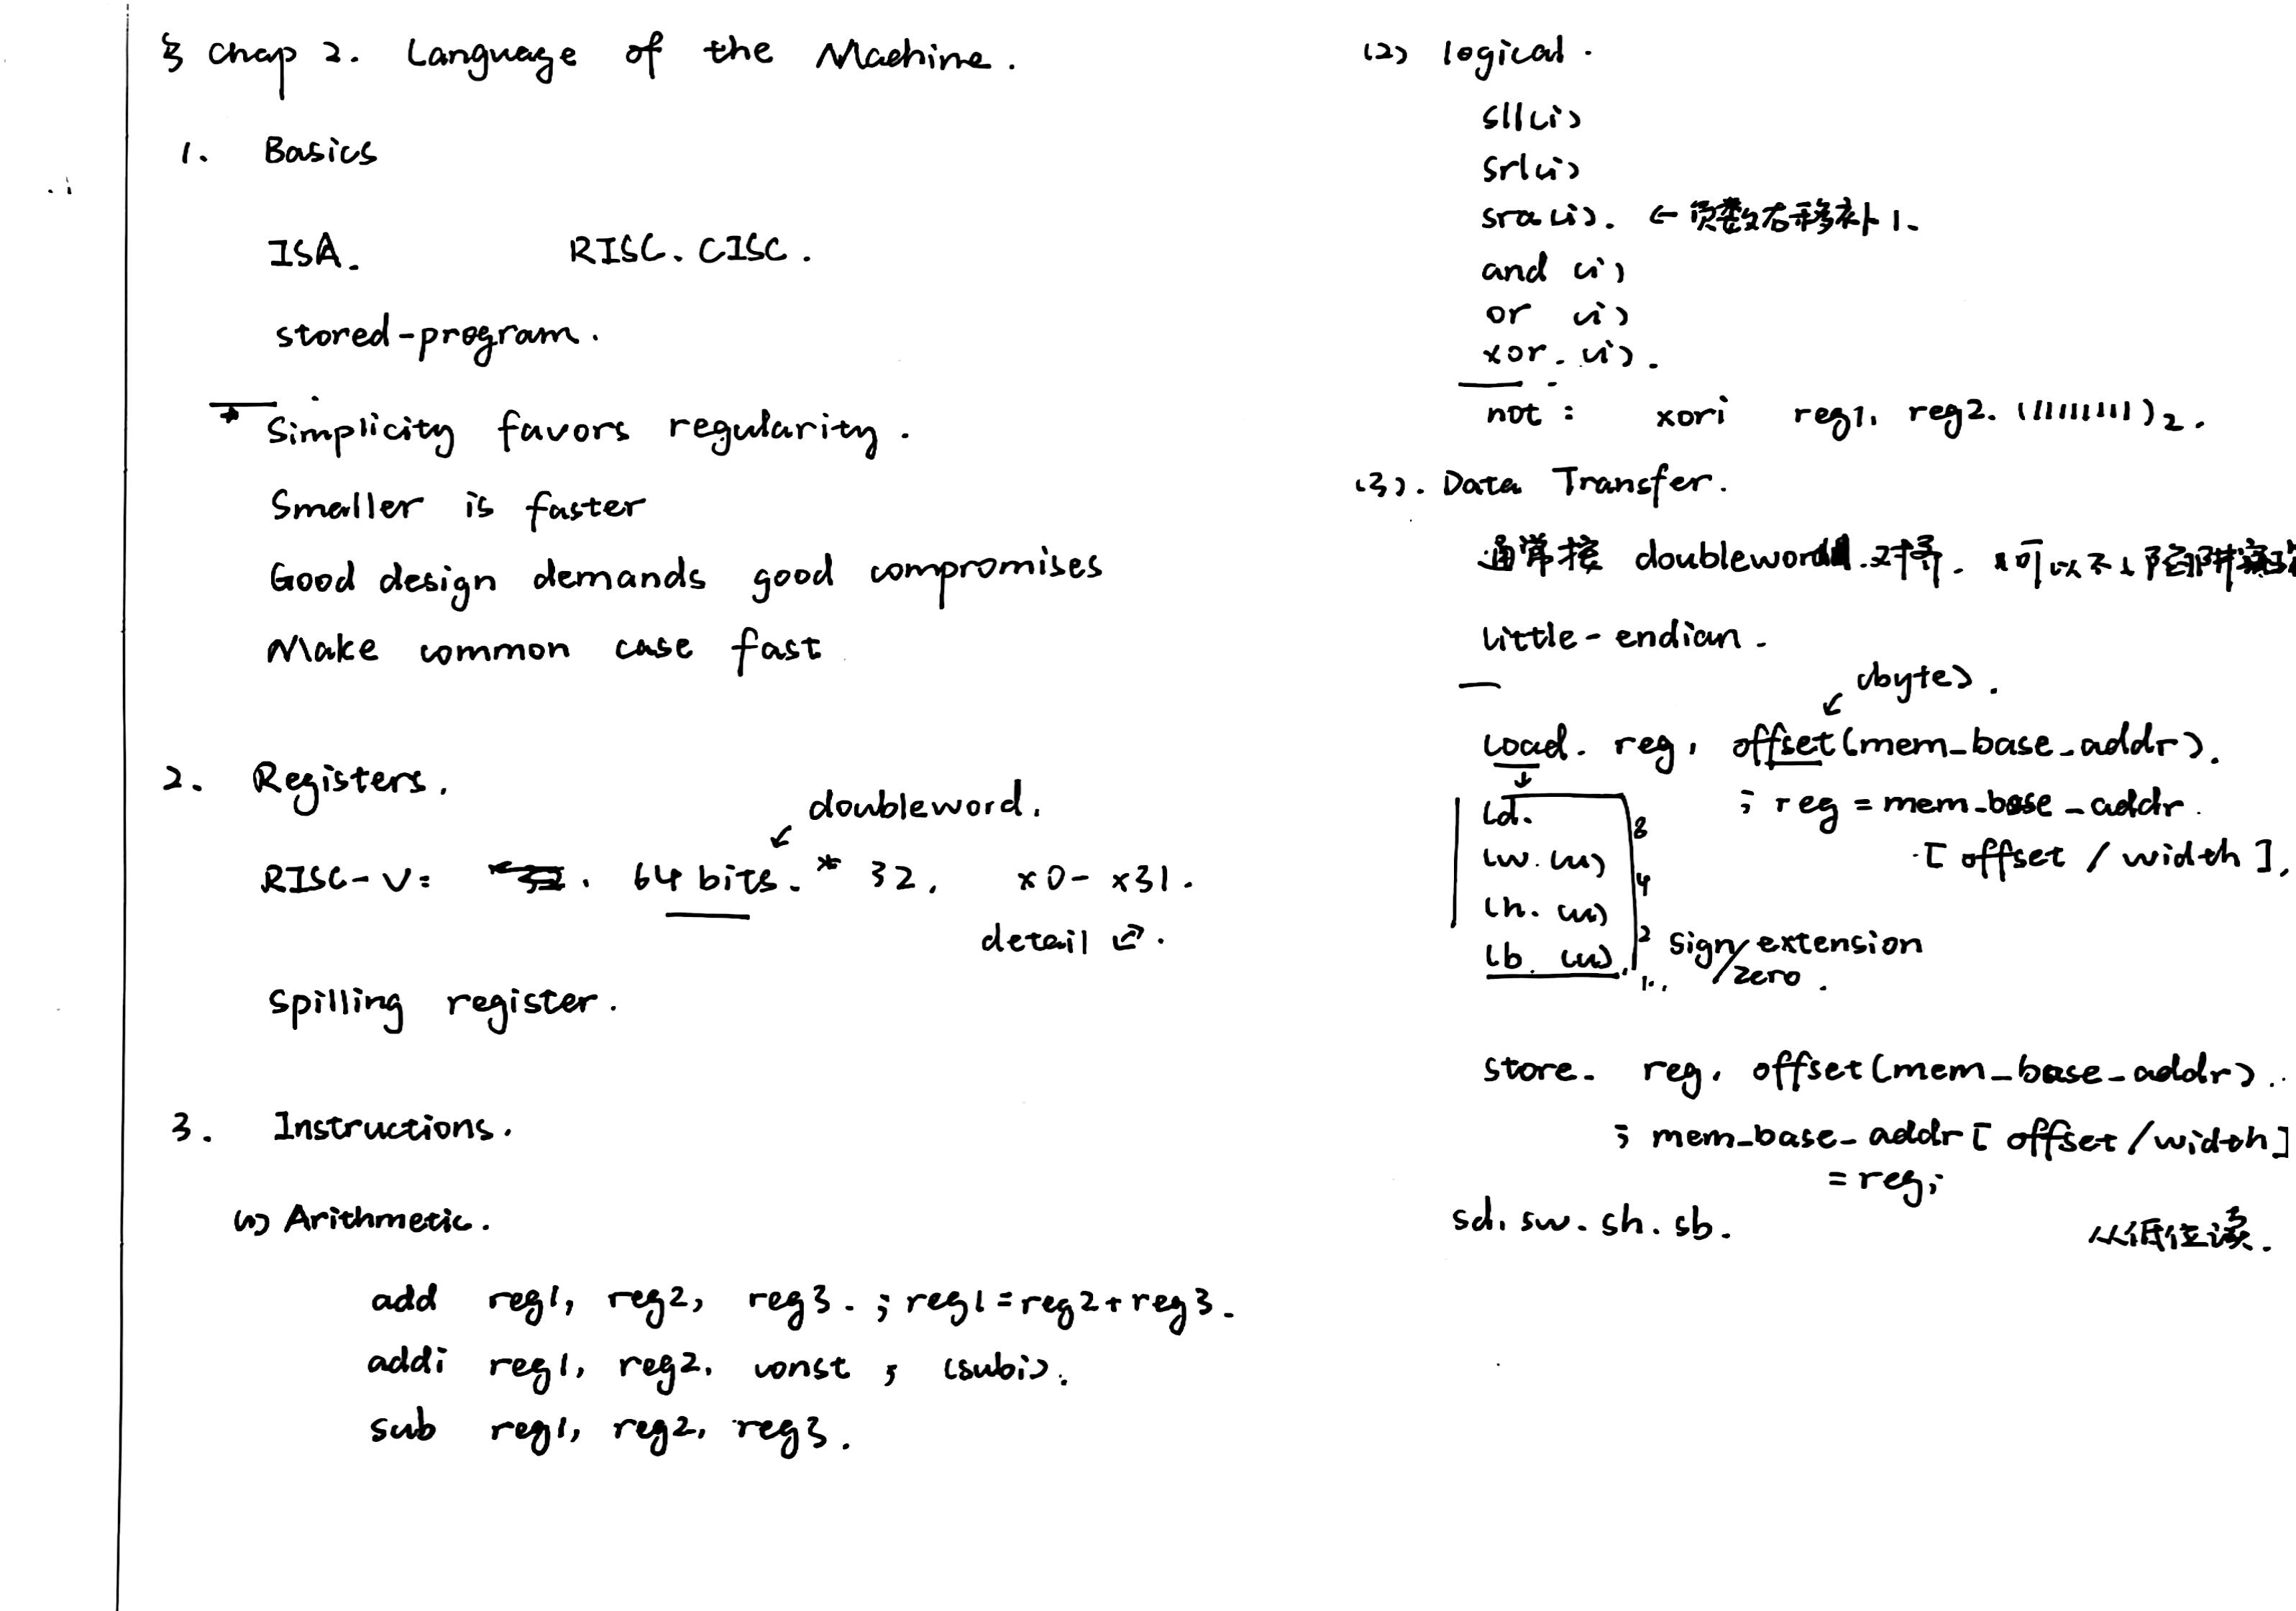 § Chap 2. Language of the Machine.
1. Basics
ISA. RISC. CISC.
stored-program.
* Simplicity favors regularity.
Smaller is faster
Good design demands good compromises
Make common case fast
2. Registers.
doubleword.
RISC-V: 64 bits. * 32. x0- x31.
detail
Spilling register.
3. Instructions.
(1) Arithmetic.
add reg1, reg2, reg3. ; reg1=reg2+reg3.
addi reg1, reg2, const ; (subi).
sub reg1, reg2, reg3.
(2) logical.
sll(i)
srl(i)
sra(i). ← 负数右移补1.
and (i)
or (i)
xor. (i).
not : xori reg1, reg2. (11111111)2.
(3). Data Transfer.
通常按 doubleword.对齐. 可以不
little-endian.
(byte).
load. reg, offset(mem_base_addr).
; reg = mem_base_addr.
[offset / width],
ld. 8
lw.(u) 4
lh. (u) 2
lb. (u). 1.
sign/zero extension.
store. reg, offset(mem_base_addr).
; mem_base_addr[offset/width]
= reg;
sd, sw. sh. sb.
从低位读.